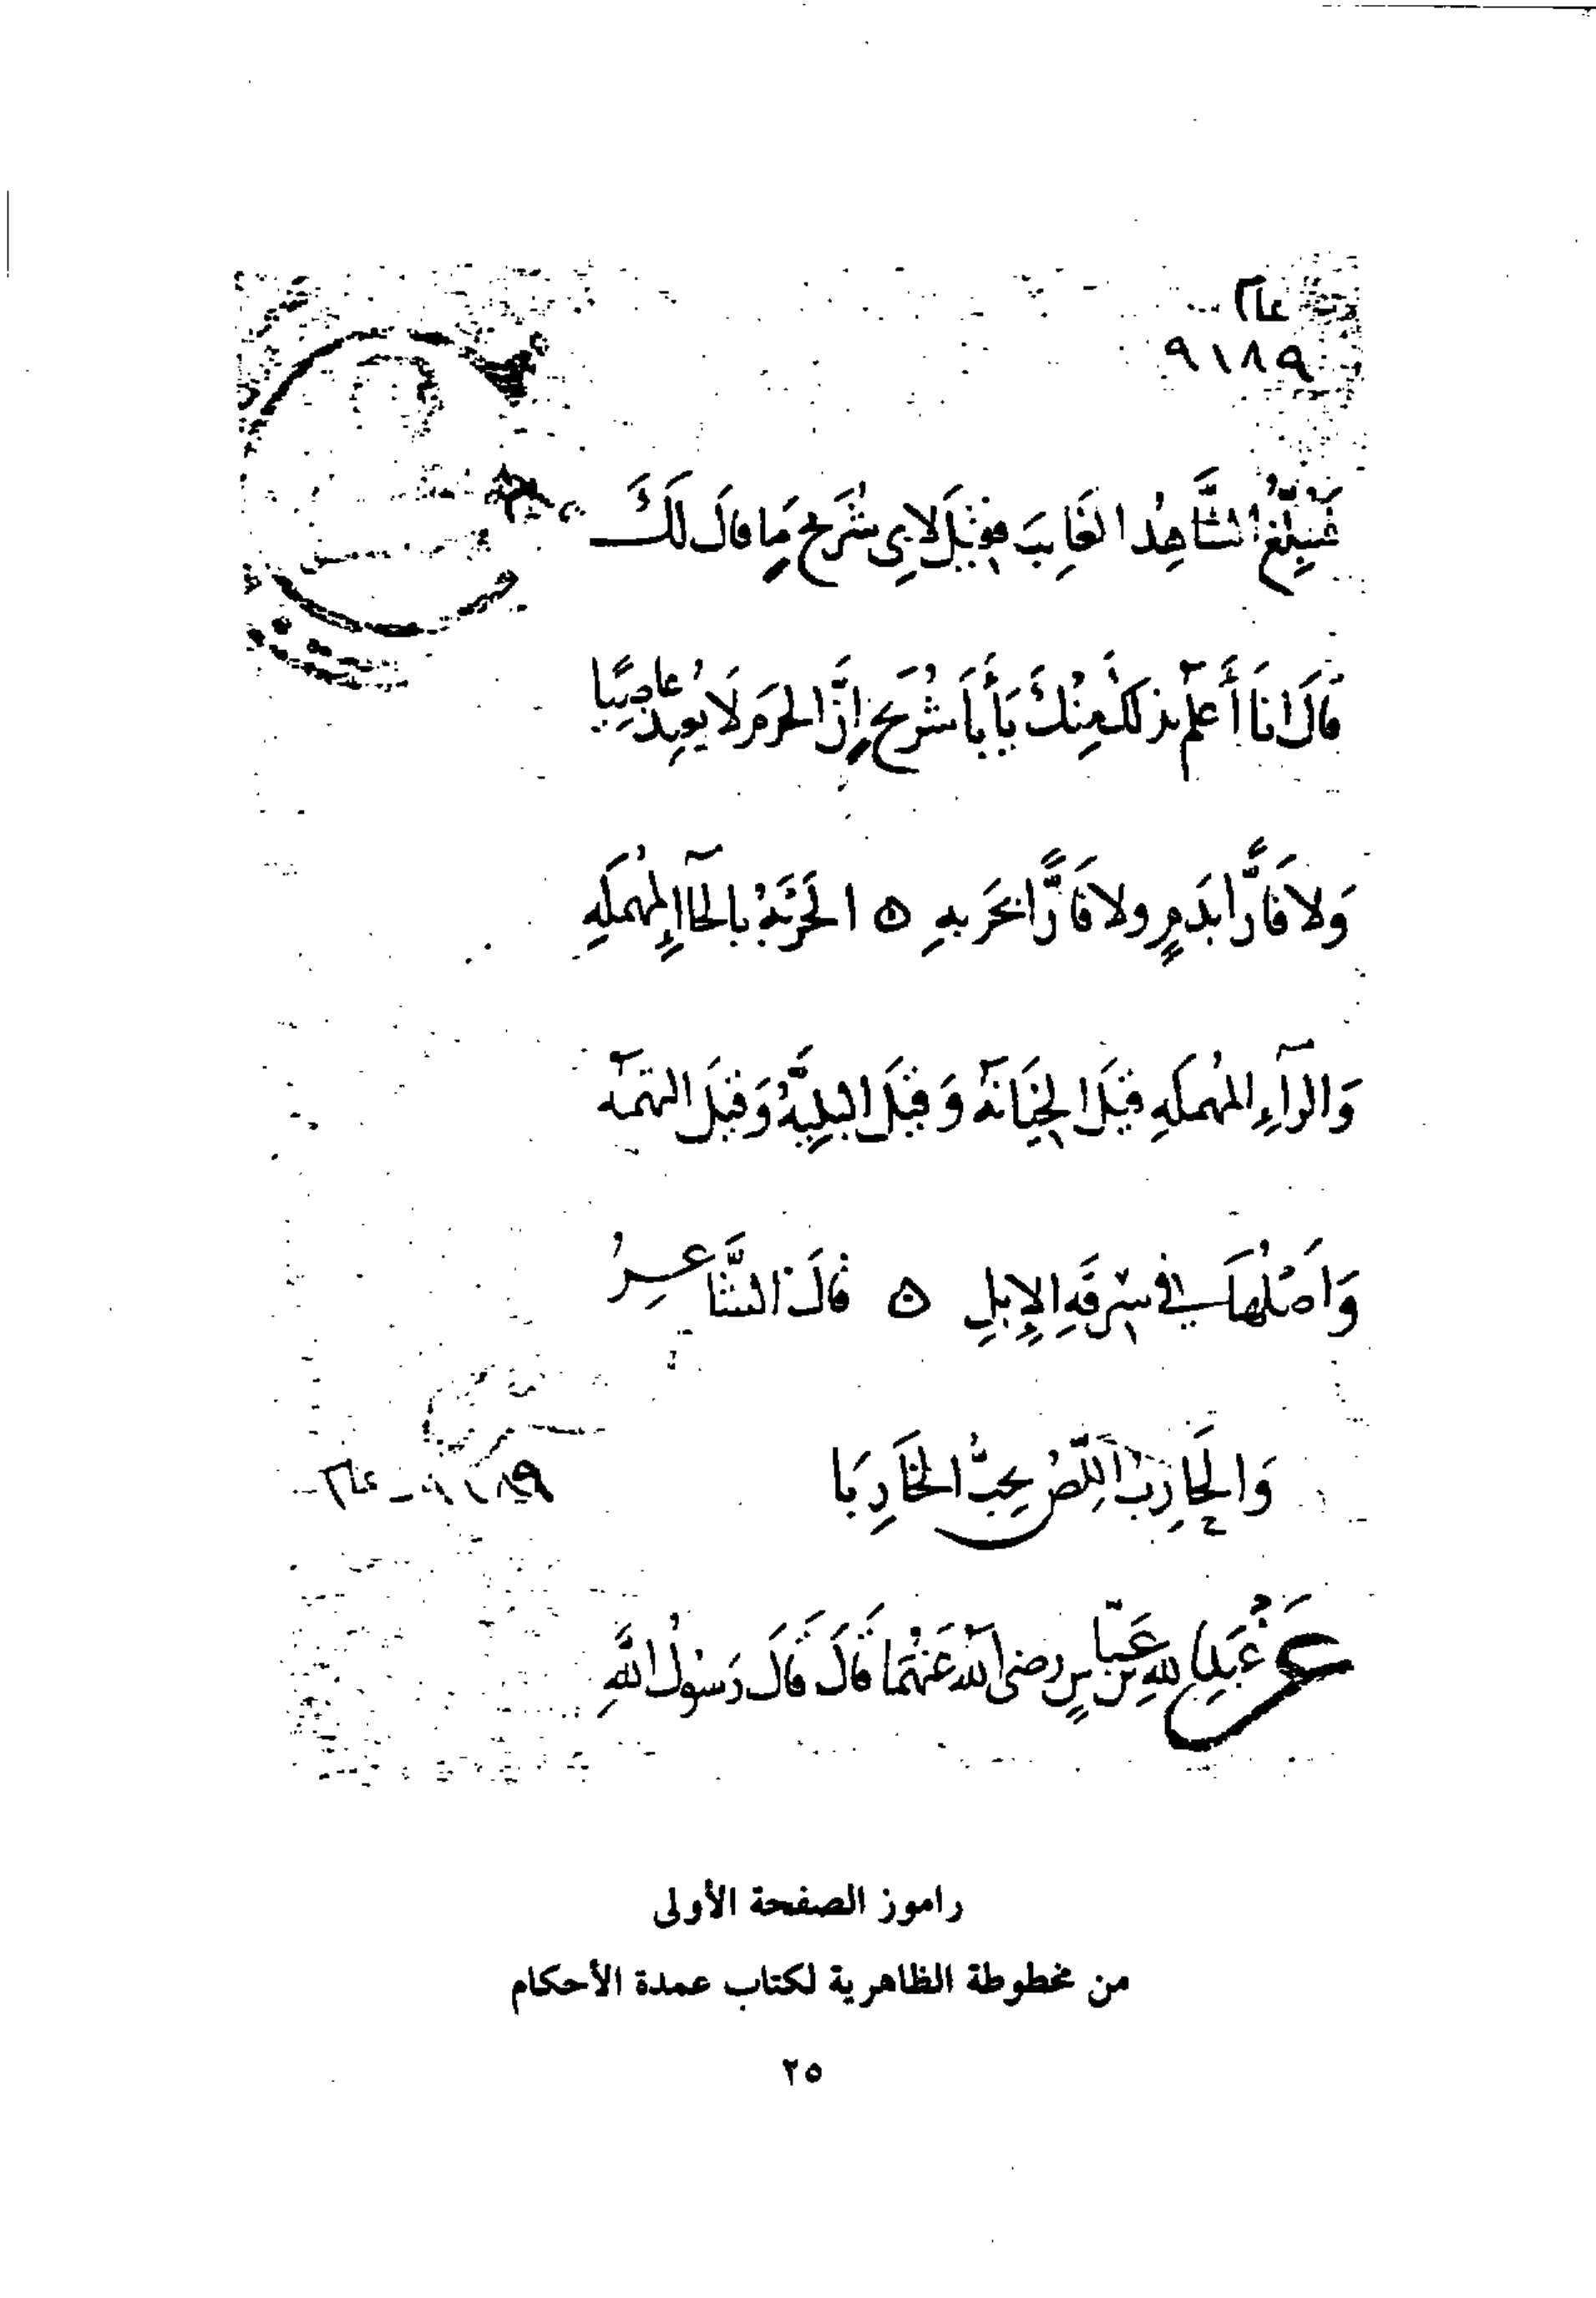 عام
٩١٨٩
فَلْيُبَلِّغِ الشَّاهِدُ الغَايِبَ فقِيْلَ لابِى شُرَيحٍ مَا قالَ لَكَ
قَالَ انَا أَعلَم بذلكَ مِنْكَ يَأَبَا شُرَيحٍ إِنَّ الحَرَم لَا يُعِيذ عَاصِيًا
وَلا فَارًّا بدَمٍ ولا فَارًّا بخَرْبهِ ه الخَرْبَةُ بالخآءِ المُهْمَلَهِ
وَالرآءِ المُهمَلهِ قيْلَ الخِيَانَة وَقيْلَ البَلِيَّةُ وَقيْلَ التهمَة
وَاَصْلُهَا في سَرِقَهِ الإبِلِ ه قالَ الشَّاعِرُ
وَالخَارِبُ اللِّصُ يُحِبُّ الخَارِبَا
٩١٨٩ - عام
عَنْ عَبْدِ اللهِ بن عَبّاسٍ رضى الله عَنْهُمَا قَالَ قَالَ رَسُولُ اللَّهِ
راموز الصفحة الأولى
من مخطوطة الظاهرية لكتاب عمدة الأحكام
٢٥